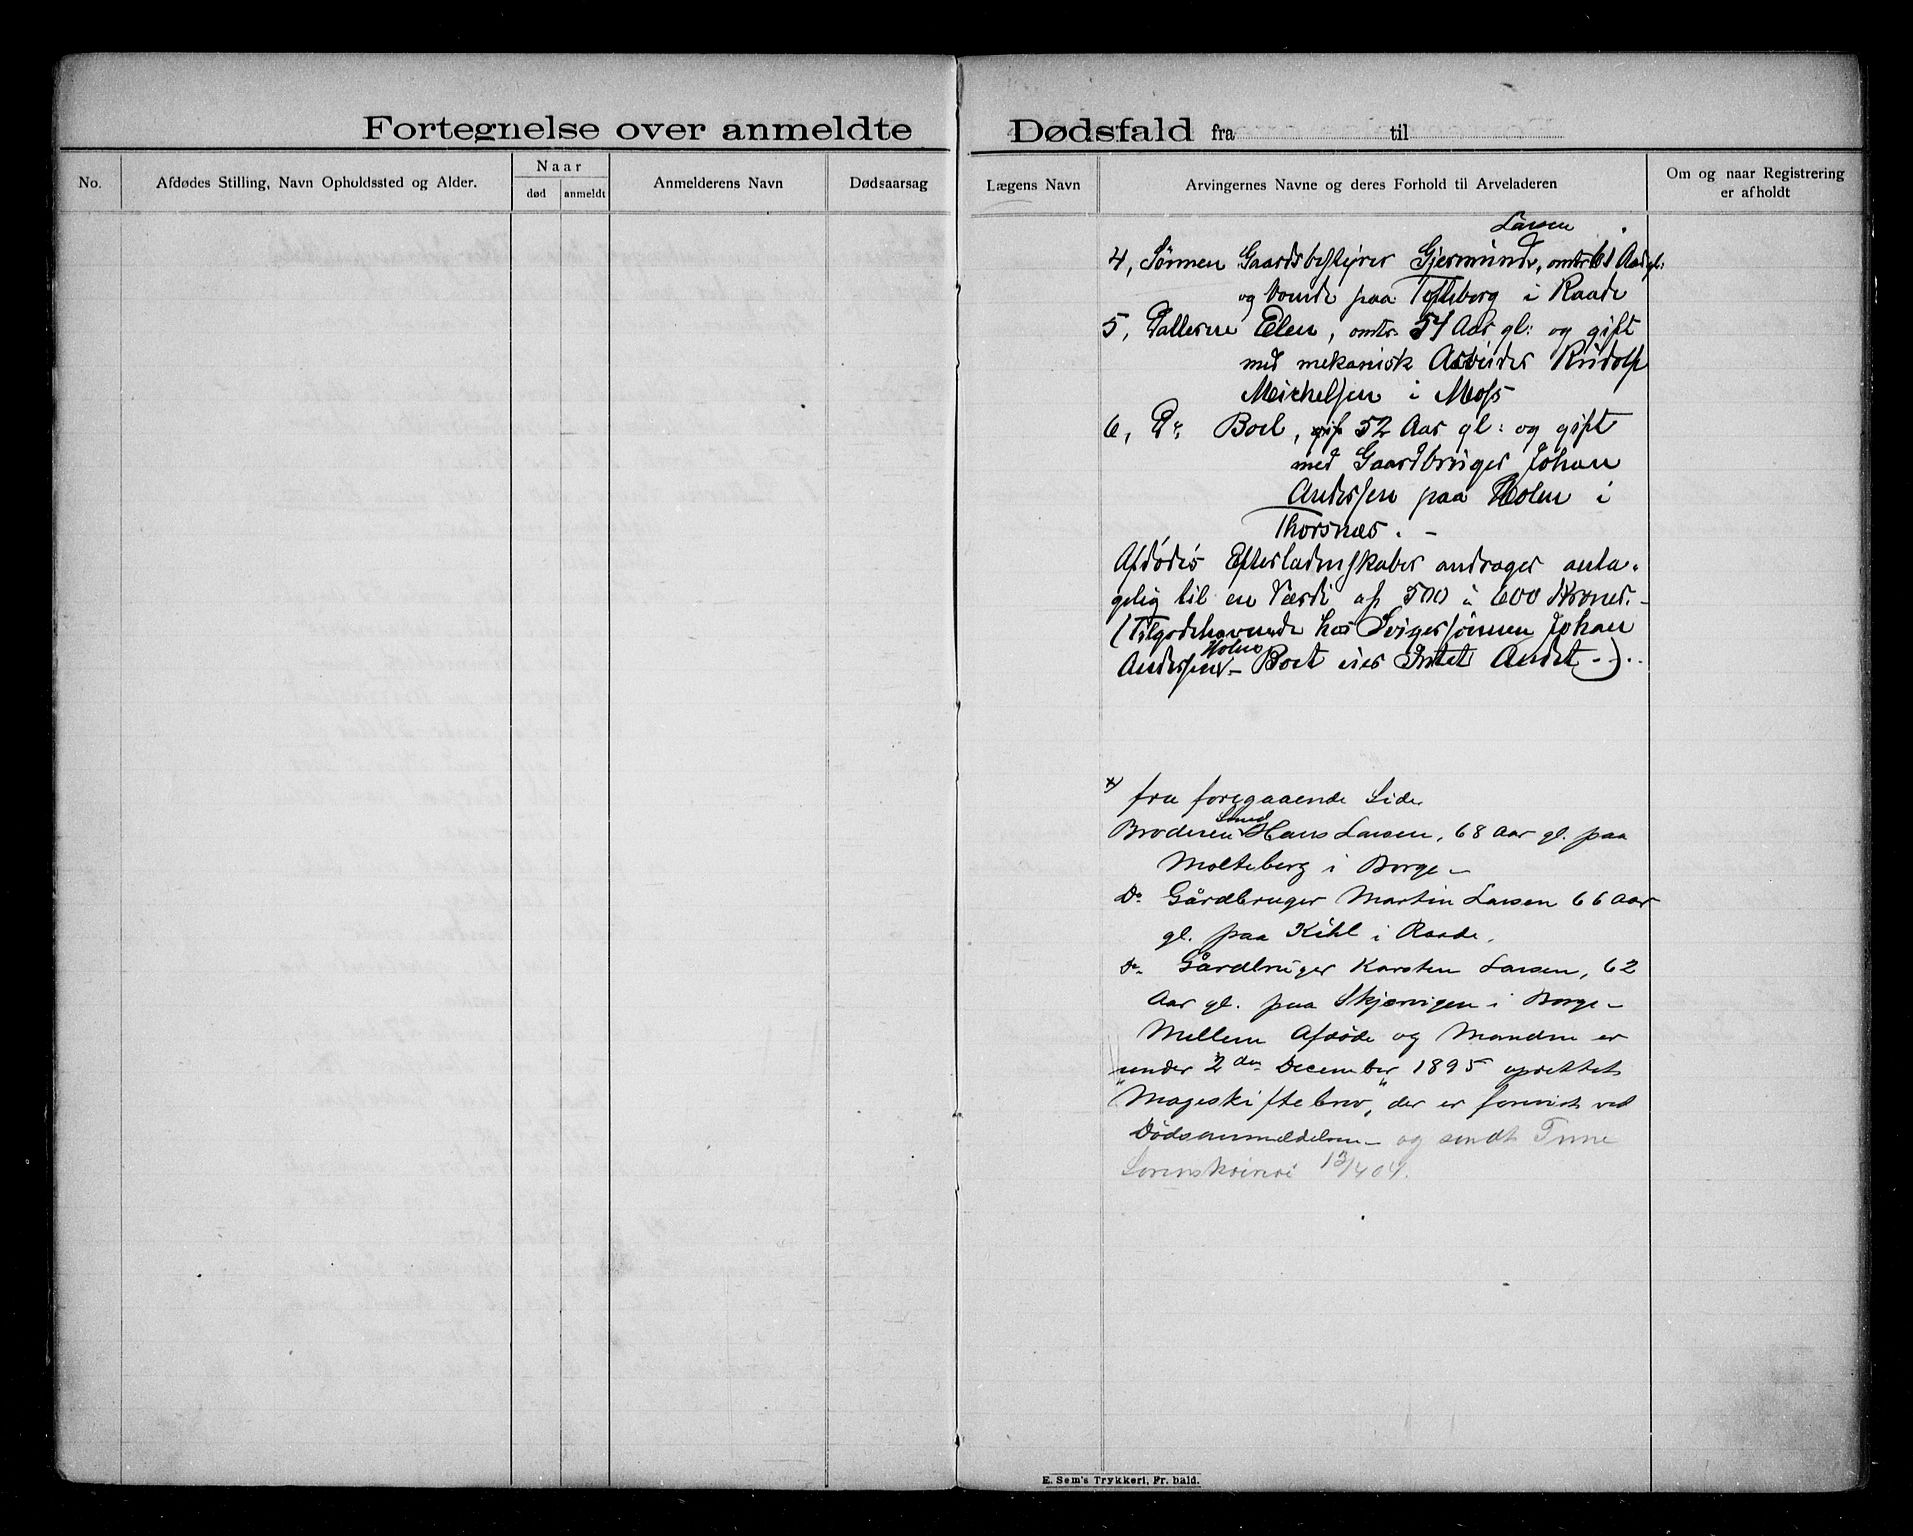 Fortegnelse over anmeldte Dødsfald fra til
No.
Afdødes Stilling, Navn Opholdssted og Alder.
Naar
død
anmeldt
Anmelderens Navn
Dødsaarsag
Lægens Navn
Arvingernes Navne og deres Forhold til Arveladeren
Om og naar Registrering
er afholdt
Larsen
4, Sønnen Gaardsbestyrer Gjermund, omtr 61 Aar gl:
og boende paa Tofteberg i Raade
5, Datteren Elen, omtr. 54 Aar gl: og gift
med mekanisk Arbeider Rudolf
Michelsen i Moss
6, Do. Boel, 52 Aar gl: og gift
med Gaardbruger Johan
Andersen paa Holm i
Thorsnæs. -
Afdødes Efterladenskaber andrager anta-
gelig til en Værdi af 500 à 600 Kroner. -
(Tilgodehavende hos Svigersønnen Johan
Andersen Holm - Boet eier Intet Andet -)..
x) fra foregaaende Side
Broderen Smed Hans Larsen, 68 Aar gl. paa
Molteberg i Borge -
Do. Gårdbruger Martin Larsen 66 Aar
gl. paa Kihl i Raade.
Do. Gårdbruger Karsten Larsen, 62
Aar gl. paa Skjærvigen i Borge -
Mellem Afdøde og Manden er
under 2den December 1895 oprettet
"Mageskiftebrev", der er forevist ved
Dødsanmeldelsen - og sendt Tune
Sorenskriveri 13/4 04.
E. Sem's Trykkeri, Fr.hald.